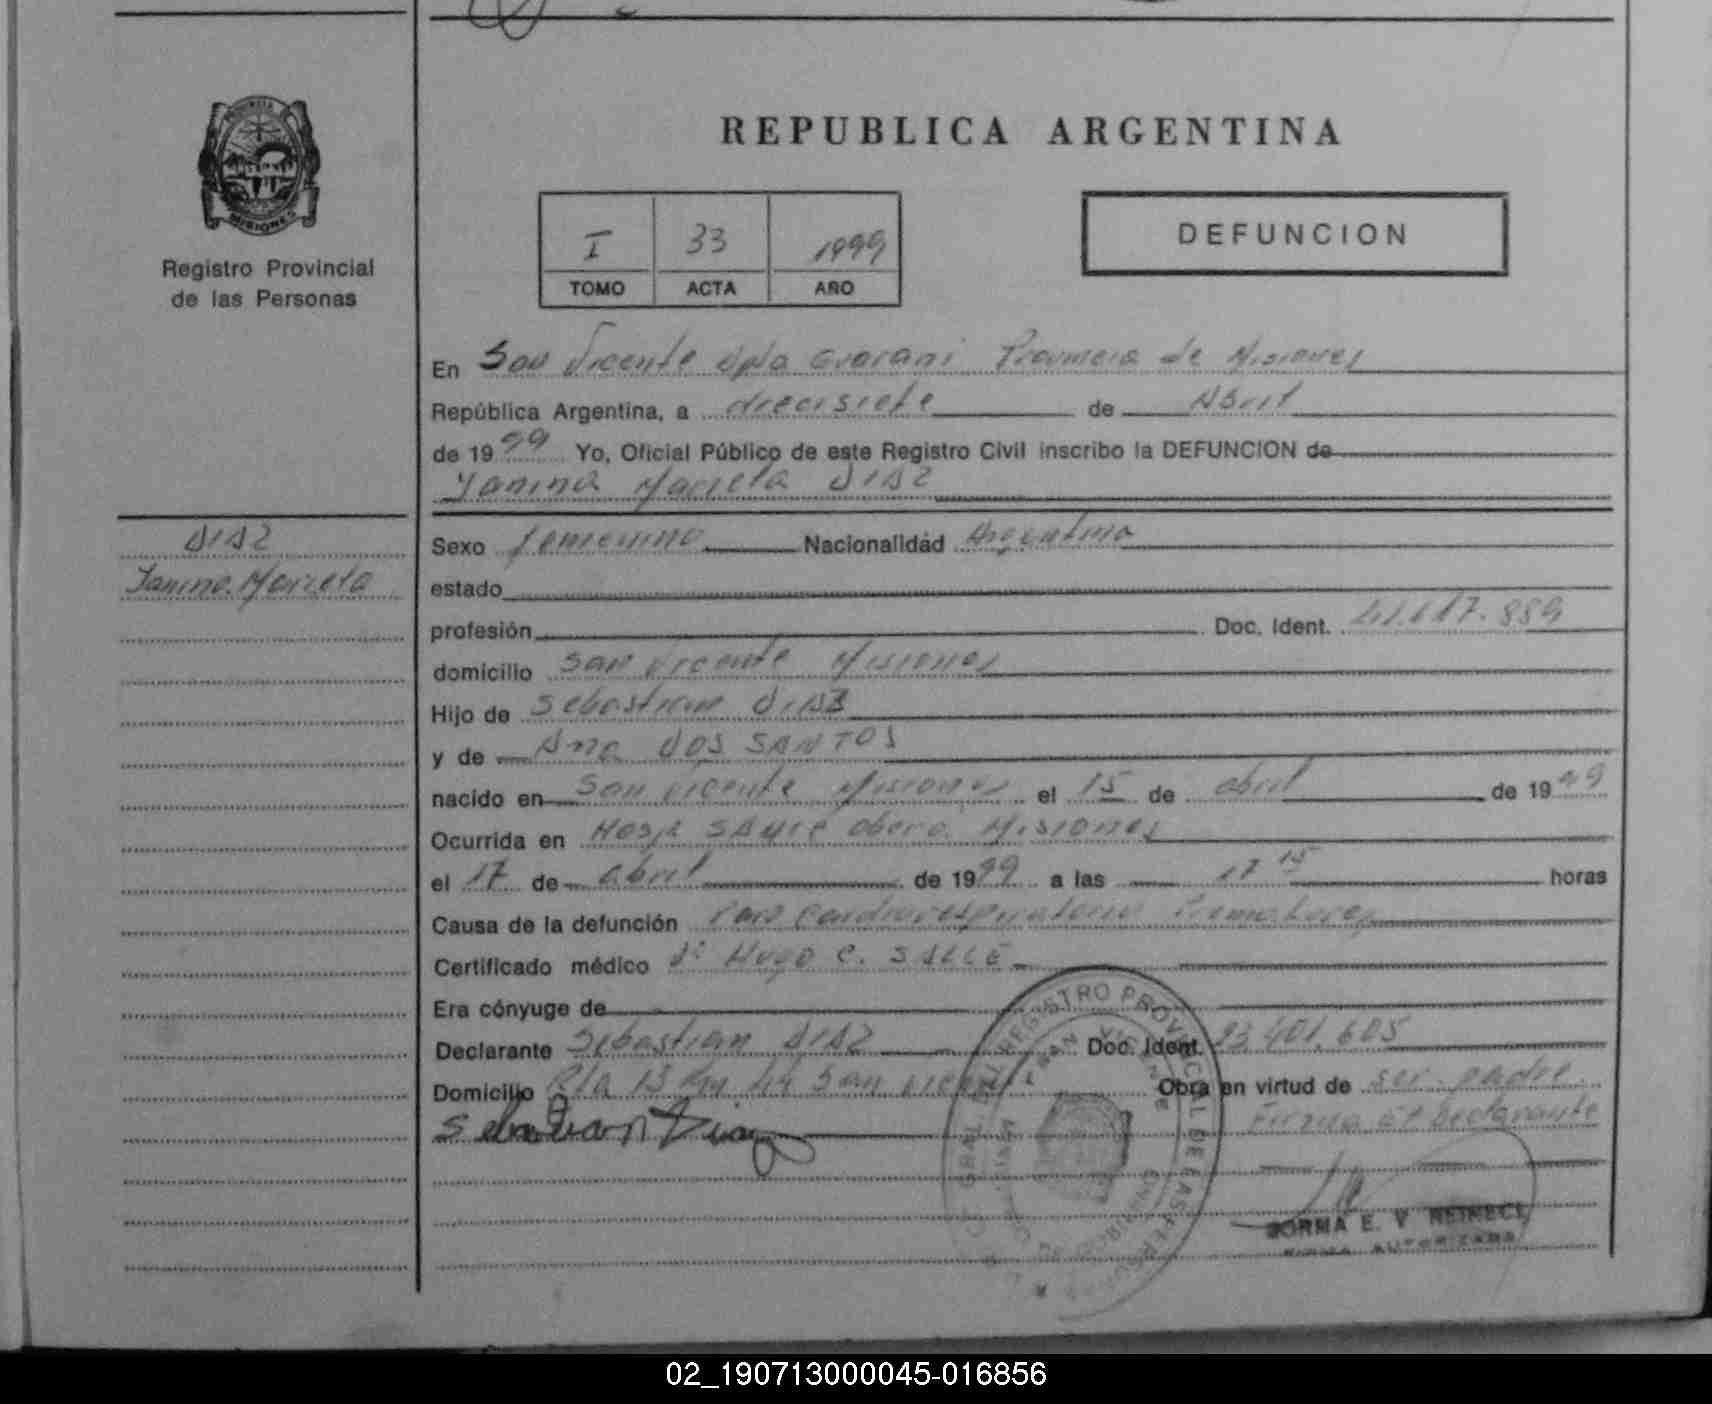 PROVINCIA
MISIONES
Registro Provincial
de las Personas
REPUBLICA ARGENTINA
I 33 1999
TOMO ACTA AÑO
DEFUNCION
En San Vicente Dpto Guarani Provincia de Misiones
República Argentina, a diecisiete de Abril
de 1999 Yo, Oficial Público de este Registro Civil inscribo la DEFUNCION de
Yanina Mariela DIAZ
DIAZ
Yanina Mariela
Sexo femenino Nacionalidad Argentina
estado
profesión Doc. Ident. 41.617.889
domicilio San Vicente Misiones
Hijo de Sebastian DIAZ
y de Ana DOS SANTOS
nacido en San Vicente Misiones el 15 de abril de 1999
Ocurrida en Hosp SAMIC Obera Misiones
el 17 de abril de 1999 a las 17 15 horas
Causa de la defunción Paro Cardiorespiratorio
Certificado médico Dr Hugo C. SALLE
Era cónyuge de
Declarante Sebastian DIAZ Doc. Ident. 23.401.605
Domicilio Rta 13 Km San Vicente Obra en virtud de ser padre
Firma el Declarante
Sebastian Diaz
REGISTRO PROVINCIAL DE LAS PERSONAS
SAN VICENTE
NORMA E. V. REINECK
FIRMA AUTORIZADA
02_190713000045-016856